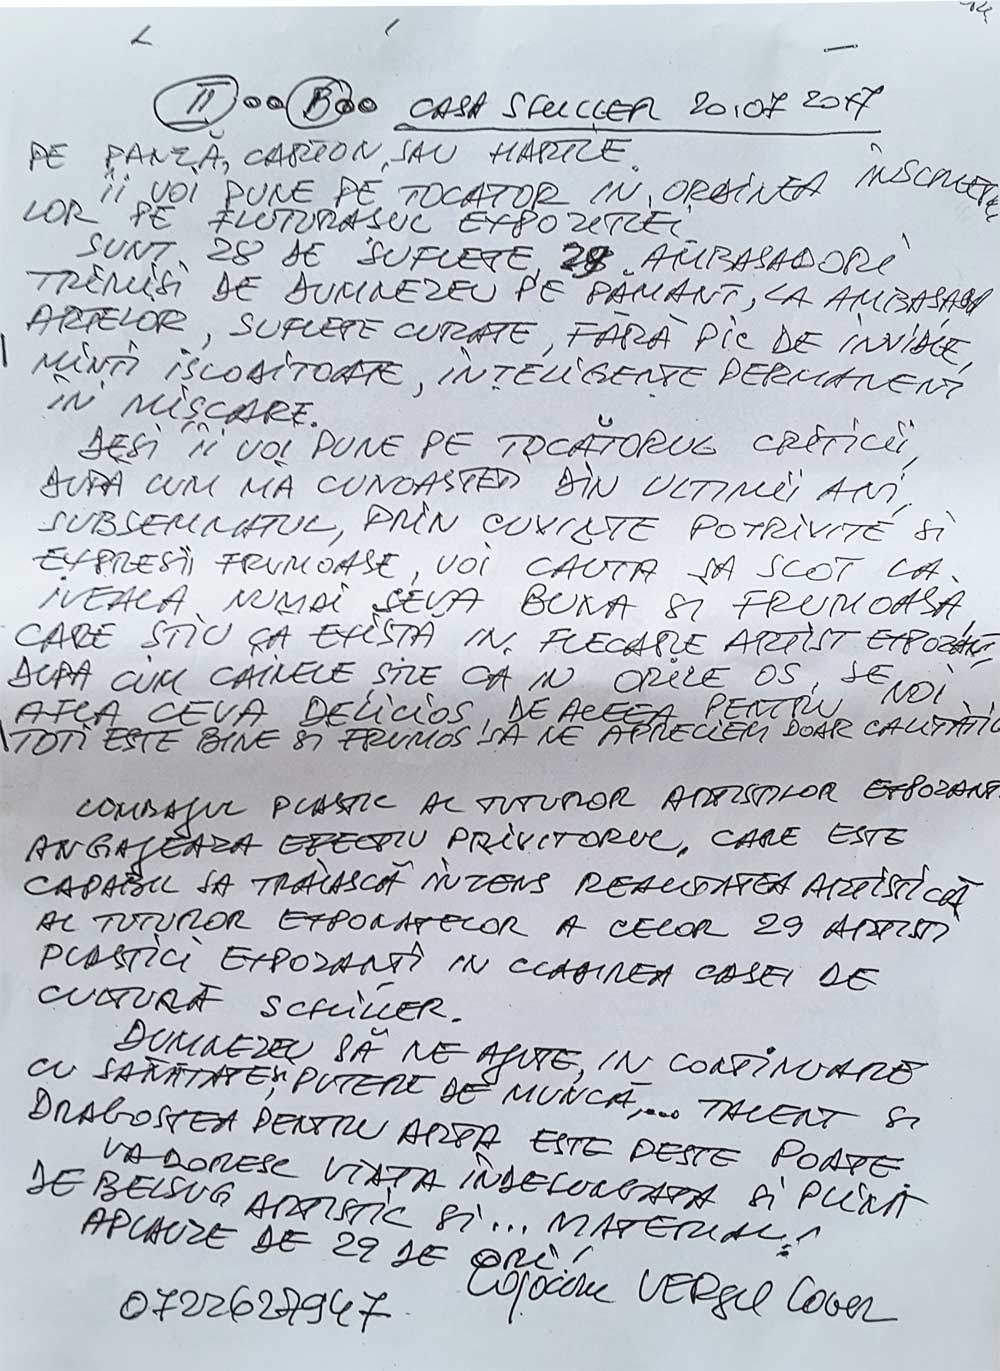 II B CASA SCHILLER 20.07 2017
PE PANZĂ, CARTON, SAU HARTIE.
ÎI VOI PUNE PE TOCATOR IN ORDINEA ÎNSCRIERI
LOR PE FLUTURASUL EXPOZITIEI
SUNT 28 DE SUFLETE, 28 AMBASADORI
TRIMISI DE DUMNEZEU PE PAMANT, LA AMBASADA
ARTELOR, SUFLETE CURATE, FĂRĂ PIC DE INVIDIE,
MINTI ISCODITOARE, INTELIGENTE PERMANENT
IN MIȘCARE.
DESI II VOI PUNE PE TOCĂTORUL CRITICII,
DUPĂ CUM MĂ CUNOASTETI DIN ULTIMII ANI,
SUBSEMNATUL, PRIN CUVINTE POTRIVITE SI
EXPRESII FRUMOASE, VOI CAUTA SA SCOT LA
IVEALA NUMAI SEVA BUNA SI FRUMOASA,
CARE STIU CA EXISTĂ IN FIECARE ARTIST EXPOZANT,
DUPA CUM CAINELE STIE CA IN ORICE OS, SE
AFLA CEVA DELICIOS, DE ACEEA PENTRU NOI
TOTI ESTE BINE SI FRUMOS SĂ NE APRECIEM DOAR CALITĂTILE
LIMBAJUL PLASTIC AL TUTUROR ARTISTILOR EXPOZANTI
ANGAJEAZA EFECTIV PRIVITORUL, CARE ESTE
CAPABIL SA TRĂIASCĂ INTENS REALITATEA ARTISTICĂ
AL TUTUROR EXPONATELOR A CELOR 29 ARTISTI
PLASTICI EXPOZANTI IN CLADIREA CASEI DE
CULTURĂ SCHILLER.
DUMNEZEU SĂ NE AJUTE, IN CONTINUARE
CU SANATATE SI PUTERE DE MUNCĂ,.... TALENT SI
DRAGOSTEA PENTRU ARTA ESTE PESTE POATE
VA DORESC VIATA ÎNDELUNGATA SI PLINĂ
DE BELSUG ARTISTIC SI... MATERIAL!
APLAUZE DE 29 DE ORI!
Cojocaru VERGIL
0722627947